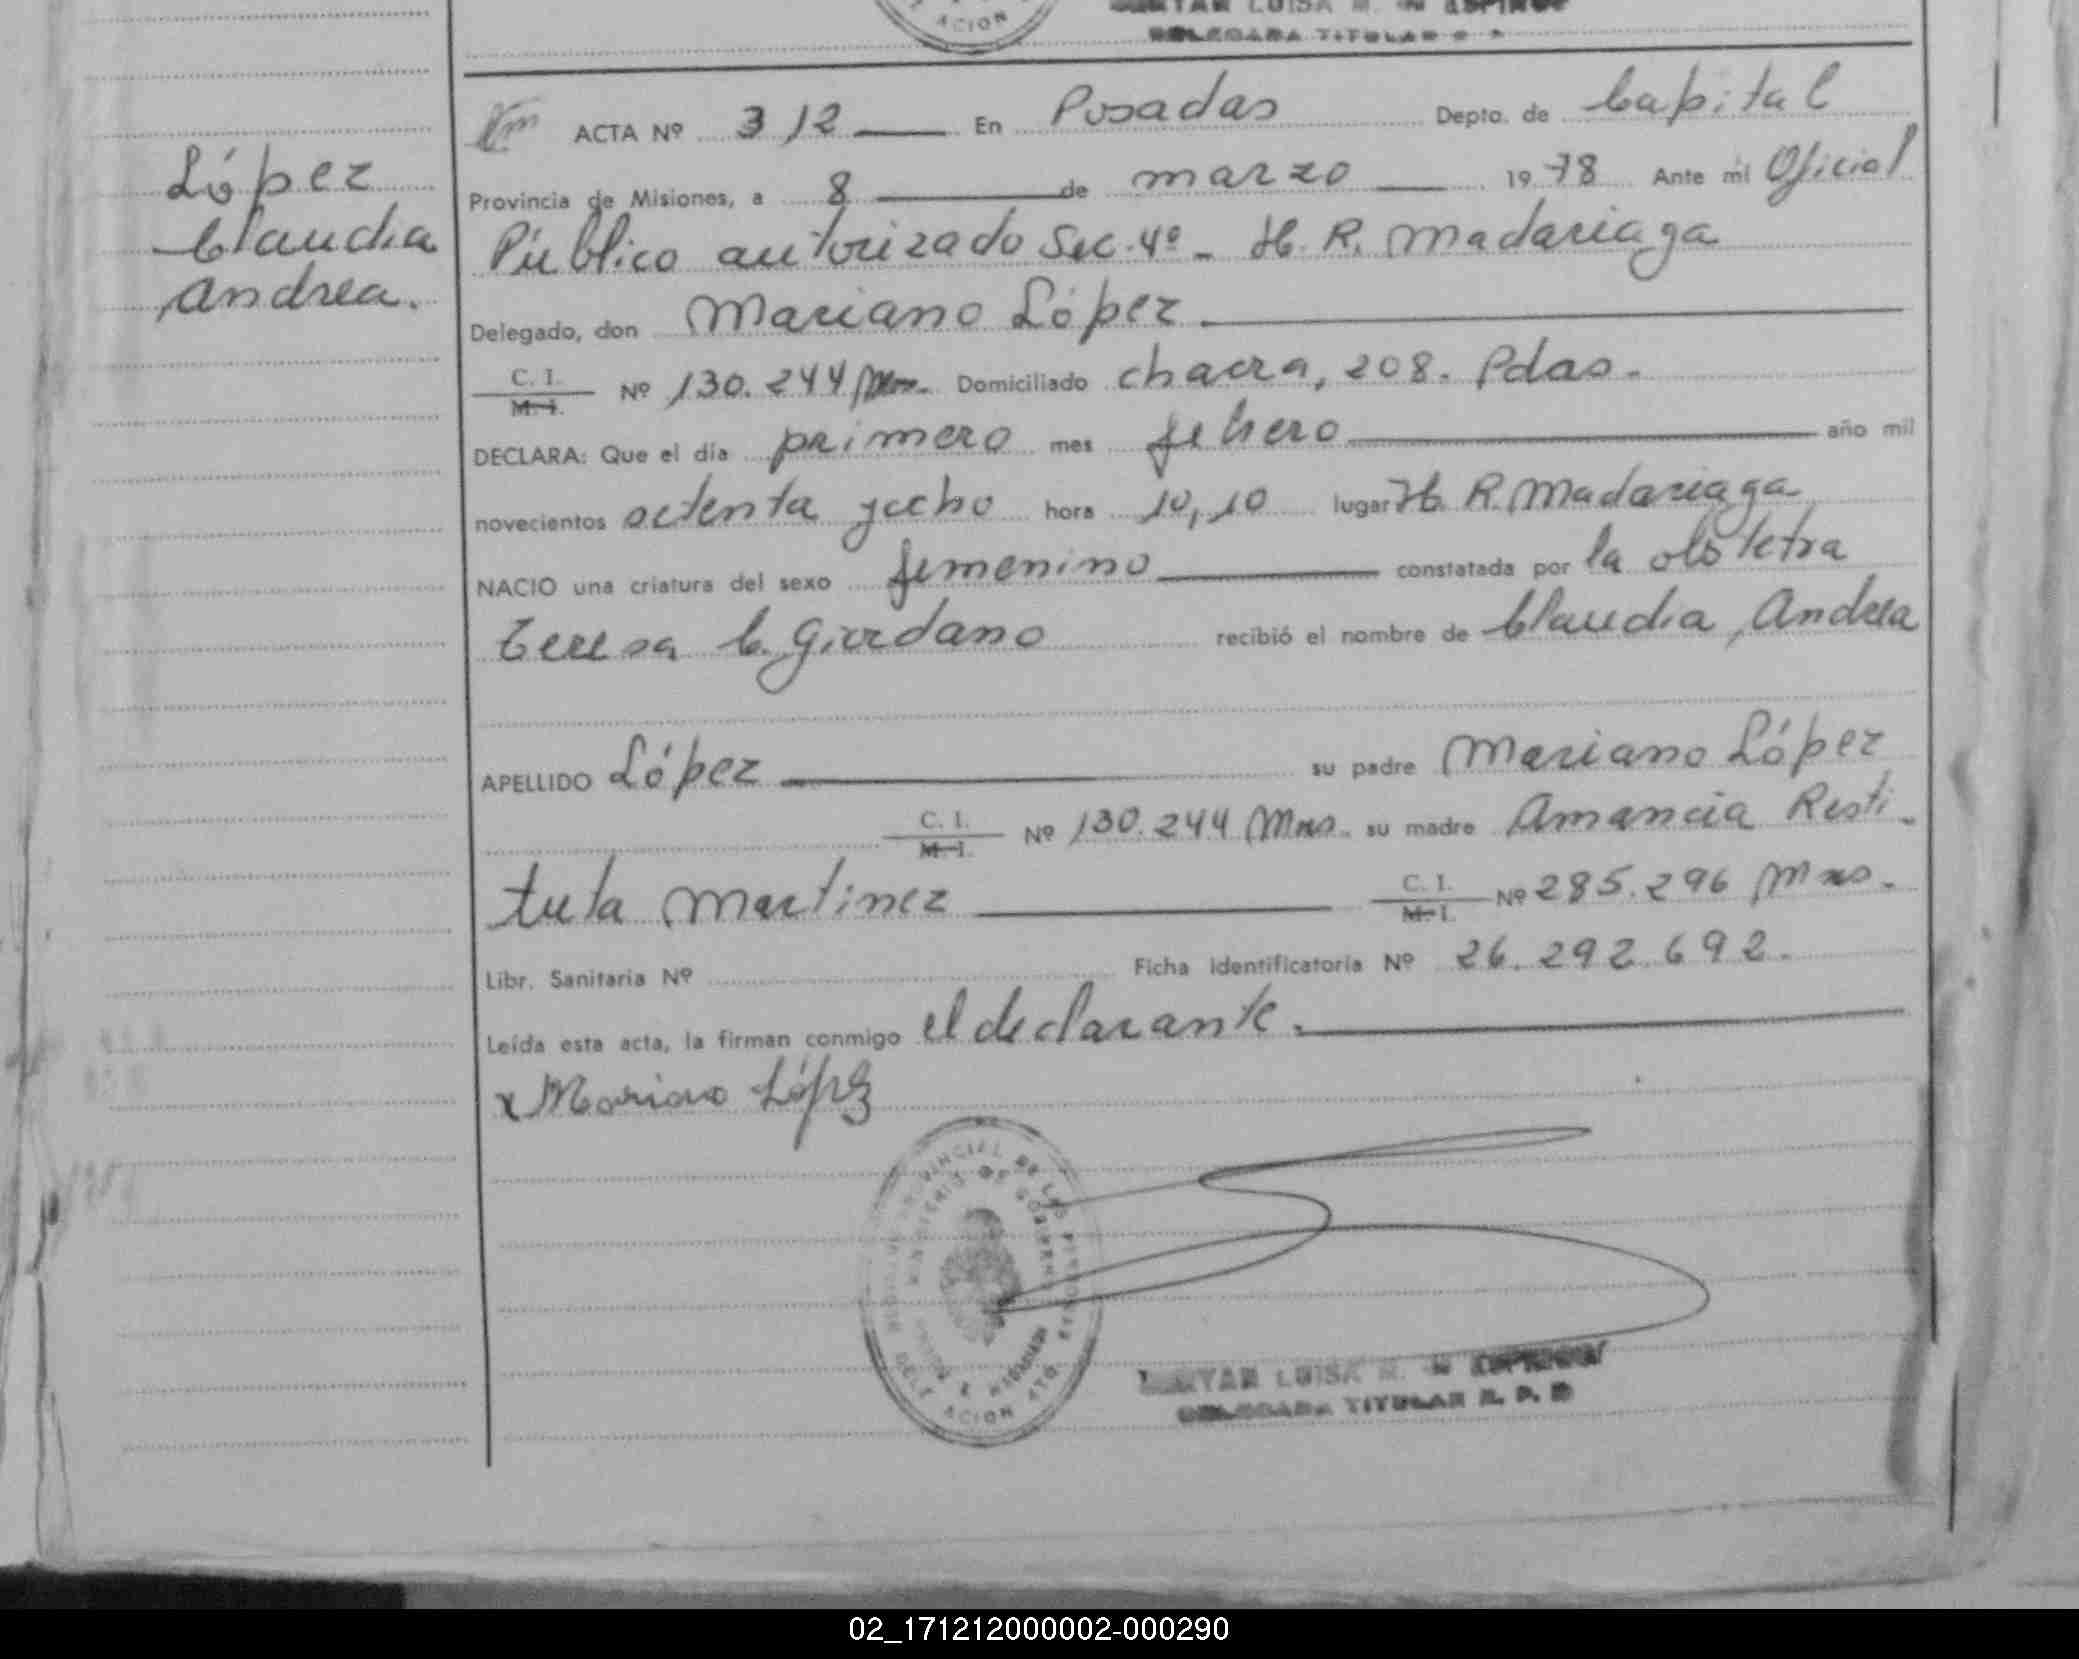 ACION
LUISA M.
DELEGADA TITULAR
ACTA Nº 312 En Posadas Depto. de Capital
López
Claudia
Andrea.
Provincia de Misiones, a 8 de marzo 1978 Ante mi Oficial
Público autorizado Sec. 4º - H. R. Madariaga
Delegado, don Mariano López
C. I.
M. I.
Nº 130.244 Mns. Domiciliado chacra, 208. Pdas.
DECLARA: Que el día primero mes febrero año mil
novecientos setenta yocho hora 10,10 lugar H. R. Madariaga
NACIO una criatura del sexo femenino constatada por la obstetra
Teresa C. Giordano recibió el nombre de Claudia Andrea
APELLIDO López su padre Mariano López
C. I.
M. I.
Nº 130.244 Mns. su madre Amancia Resti-
tuta Martinez
C. I.
M. I.
Nº 285.296 Mns.
Libr. Sanitaria Nº Ficha Identificatoria Nº 26.292.692.
Leída esta acta, la firman conmigo el declarante.
x Mariano López
MINISTERIO DE GOBIERNO
LUISA M.
DELEGADA TITULAR R. P. P
02_171212000002-000290